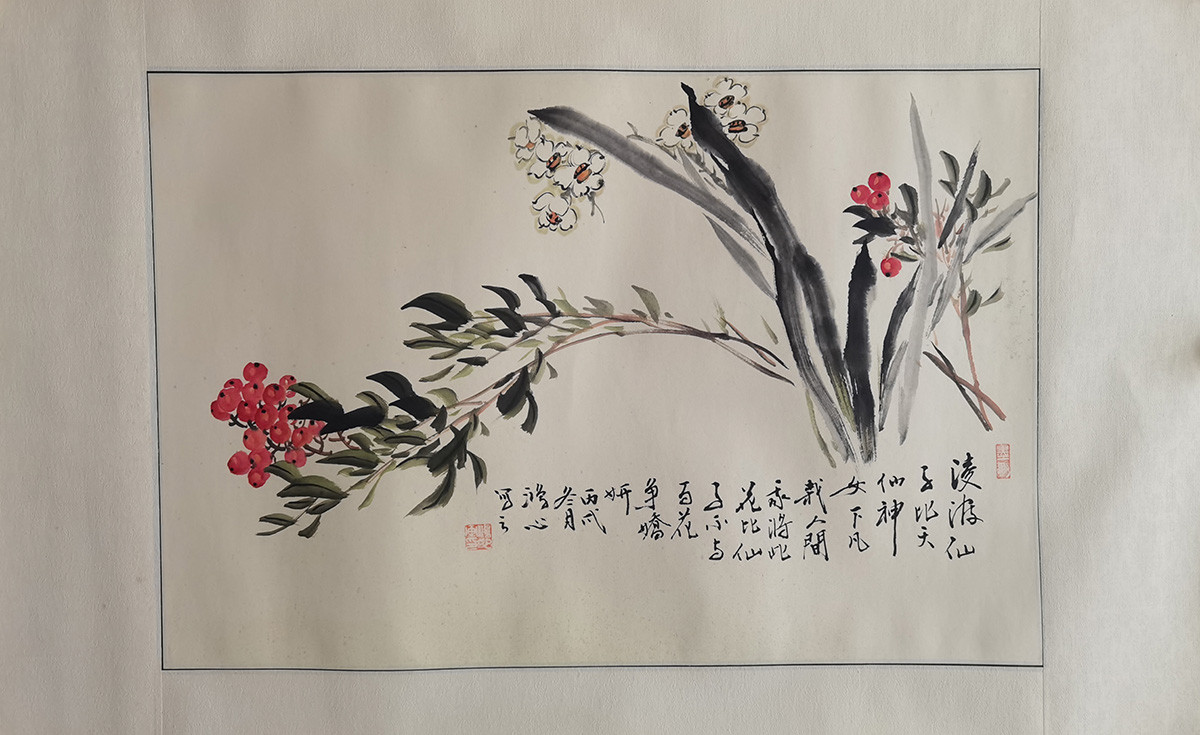 凌波仙
子比天
仙神
女下凡
栽人間
我將此
花比仙
子不与
百花
争嬌
妍
丙戌
冬月
心
写之